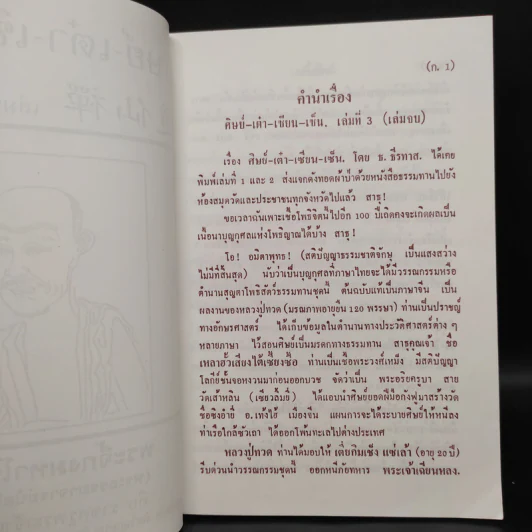 (ก. 1)
คำนำเรื่อง
ศิษย์-เต๋า-เซียน-เซ็น. เล่มที่ 3 (เล่มจบ)
เรื่อง ศิษย์-เต๋า-เซียน-เซ็น. โดย ธ. ธีรทาส. ได้เคย
พิมพ์เล่มที่ 1 และ 2 ส่งแจกดังทอดผ้าป่าด้วยหนังสือธรรมทานไปยัง
ห้องสมุดวัดและประชาชนทุกจังหวัดไปแล้ว สาธุ!
ขอเวลาฉันเพาะเชื้อโพธิจิตนี้ไปอีก 100 ปีเถิดคงจะเกิดผลเป็น
เนื้อนาบุญกุศลแห่งโพธิญาณได้บ้าง สาธุ!
โอ! อมิตาพุทธ! (สติปัญญาธรรมชาติจักษุ เป็นแสงสว่าง
ไม่มีที่สิ้นสุด) นับว่าเป็นบุญกุศลที่ภาษาไทยจะได้มีวรรณกรรมหรือ
ตำนานสูญตาโพธิสัตว์ธรรมทานชุดนี้ ต้นฉบับแท้เป็นภาษาจีน เป็น
ผลงานของหลวงปู่ทวด (มรณภาพอายุยืน 120 พรรษา) ท่านเป็นปราชญ์
ทางอักษรศาสตร์ ได้เก็บข้อมูลในตำนานทางประวัติศาสตร์ต่าง ๆ
หลายภาษา ไว้สอนศิษย์เป็นมรดกทางธรรมทาน สาธุคุณเจ้า ชื่อ
เหลาฮั้วเสียงไต้เซี้ยงซือ ท่านเป็นเชื้อพระวงศ์เหม็ง มีสติปัญญา
โลกีย์ชั้นจอหงวนมาก่อนออกบวช จัดว่าเป็น พระอริยครูบา สาย
วัดเส้าหลิน (เซียวลิ้มยี่) ได้แอบนำศิษย์ยอดฝีมือกังฟูมาสร้างวัด
ชื่อซิงอำยี่ อ.เท้งไฮ้ เมืองจีน แผนการจะได้ระบายศิษย์ให้หนีลง
ท่าเรือใกล้ซัวเถา ได้ออกโพ้นทะเลไปต่างประเทศ
หลวงปู่ทวด ท่านได้มอบให้ เตี๋ยกิมเช็ง แซ่เล้า (อายุ 20 ปี)
รีบด่วนนำวรรณกรรมชุดนี้ ออกหนีภัยทหาร พระเจ้าเฉียนหลง.